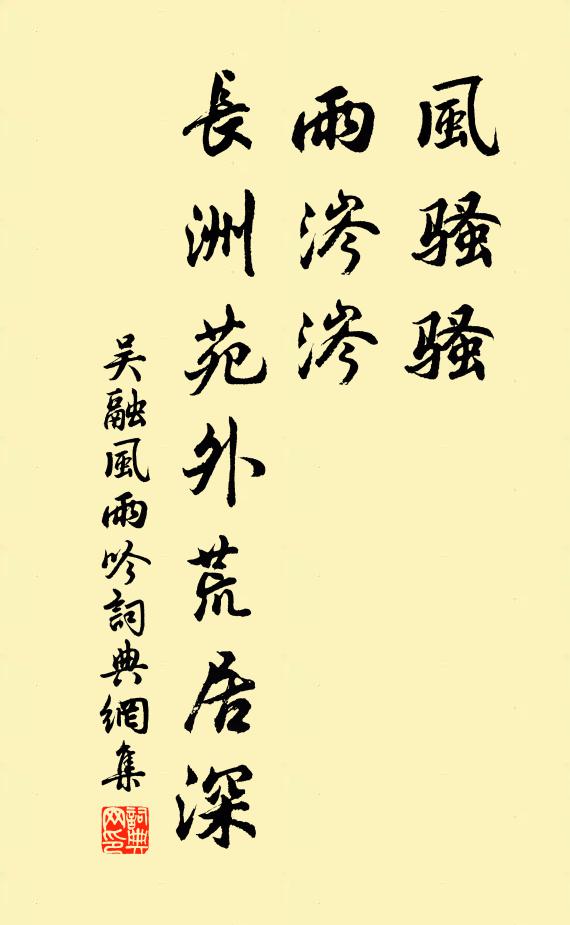 風騷騷
雨涔涔
長洲苑外荒居深
吴融風雨吟詞典網集
詞典网印